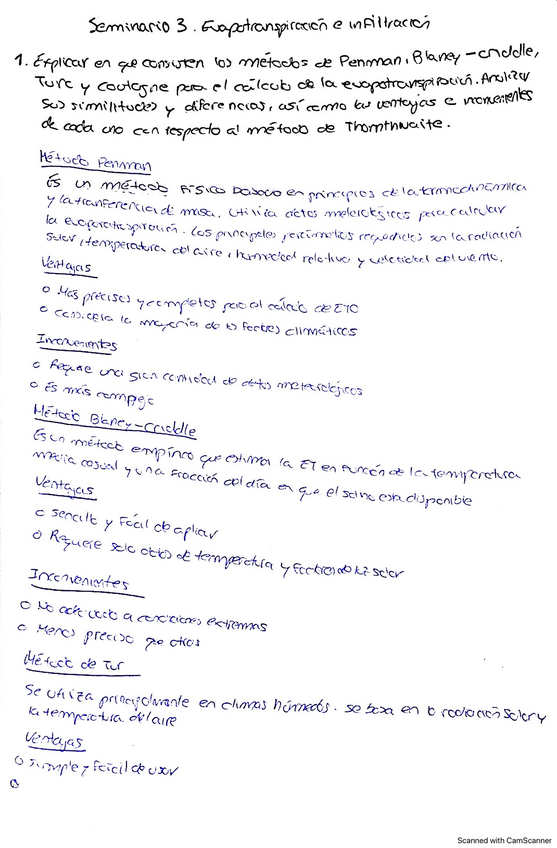 Seminario 3. Evapotranspiración e infiltración
1. Explicar en que consisten los métodos de Penman, Blaney-criddle,
Turc y coutagne para el cálculo de la evapotranspiración. Analizar
sus similitudes y diferencias, así como las ventajas e inconvenientes
de cada uno con respecto al método de Thornthwaite.
Método Penman
Es un método Físico basado en principios de la termodinámica
y la tranferencia de masa. Utiliza datos meteorológicos para calcular
la evapotranspiración. Los principales parámetros requeridos son la radiación
solar, temperatura del aire, humedad relativa y velocidad del viento.
Ventajas
o Más precisos y completos para el cálculo de ETC
o considera la mayoría de los factores climáticos
Inconvenientes
o Requiere una gran cantidad de datos meteorológicos
o Es más complejo
Método Blaney-criddle
Es un método empírico que estima la ET en función de la temperatura
media y una fracción del día en que el sol esta disponible
Ventajas
o sencillo y Fácil de aplicar
o Requiere solo datos de temperatura y factores de luz solar
Inconvenientes
o No adecuado a condiciones extremas
o Menos preciso que otros
Método de Tur
Se utiliza principalmente en climas húmedos. se basa en la radiación solar y
la temperatura del aire
Ventajas
o Simple y fácil de usar
o
Scanned with CamScanner